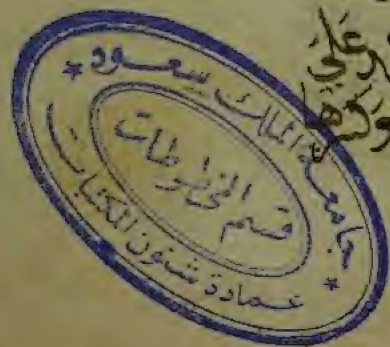 على
جامعة الملك سعود
قسم المخطوطات
عمادة شئون المكتبات